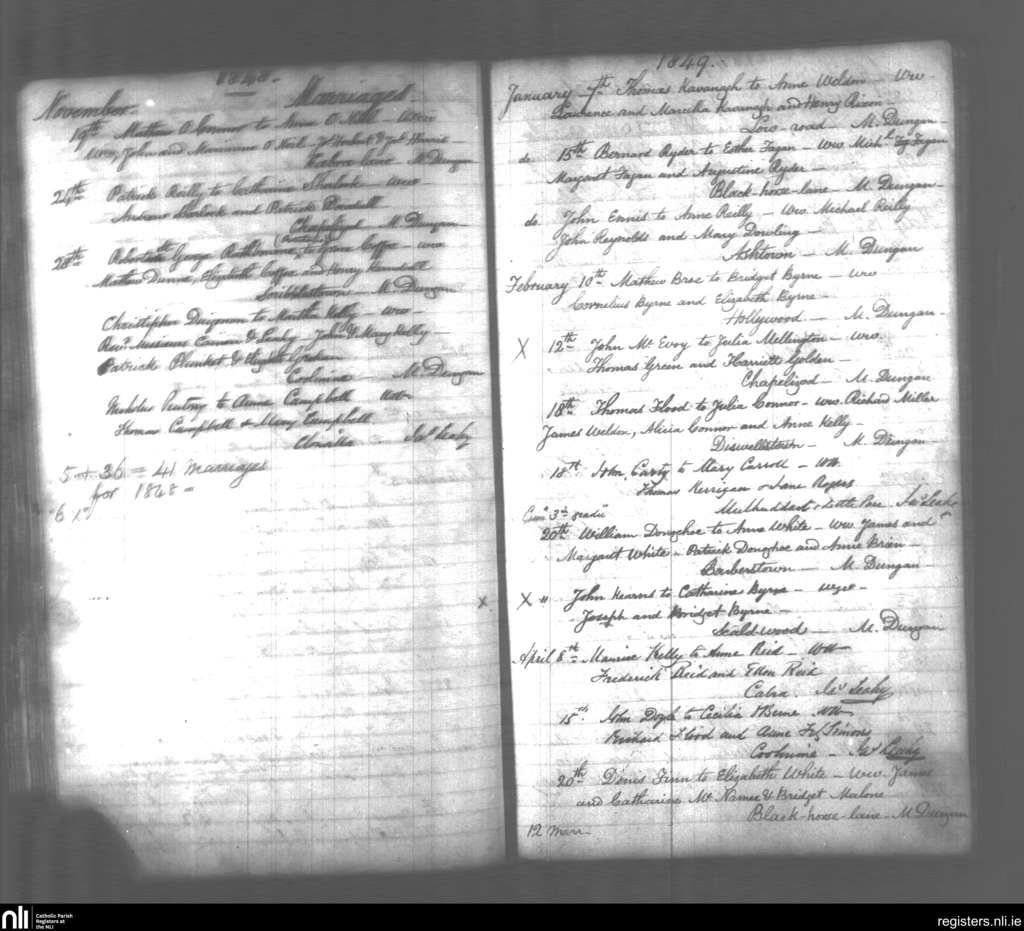 1848.
November. Marriages.
19th Mathew O'Connor to Anne O'Neil
John and O'Neil
lane M. Dungan
24th Patrick Reilly to Catherine Sherlock
Andrew Sherlock and Patrick
Chapelizod M. Dungan
28th George to Coffee
Mathew Dunne, Elizabeth Coffee and Henry
Scribblestown M. Dungan
Christopher Duignan to Martha Kelly
Revd. Messieurs & Leahy, John & Mary Kelly
Patrick Plunket &
Coolmine - M. Dungan
Nicholas to Anne Campbell
Thomas Campbell & Mary Campbell
Clonsilla Jas. Leahy
5 + 36 = 41 marriages
for 1848 =
6 x
1849.
January 7th Thomas Kavanagh to Anne Weldon - Wss
Laurence and Marcella Kavanagh and Henry Rixon
Low-road - M. Dungan
do 15th Bernard Ryder to Esther Fagan - Wss. Michl. Fagan
Margaret Fagan and Augustine Ryder -
Black-horse-lane - M. Dungan -
do. John Ennis to Anne Reilly - Wss. Michael Reilly
John Reynolds and Mary Dowling -
Ashtown - M. Dungan
February 10th Mathew to Bridget Byrne - Wss
Cornelius Byrne and Elizabeth Byrne -
Hollywood - M. Dungan -
X 12th John Mc Evoy to Julia Mellington - Wss.
Thomas Green and Harriett Golden -
Chapelizod - M. Dungan
18th Thomas Flood to Julia Connor - Wss. Richard Miller
James Weldon, Alicia Connor and Anne Kelly -
Diswellstown - M. Dungan
18th John to Mary Carroll -
Thomas Kerrigan & Jane Rogers
Mulhuddart & Little Pace Jas. Leahy
20th William Donohoe to Anne White - Wss. James and
Margaret White - Patrick Donohoe and Anne Brien -
Barberstown - M. Dungan -
X " John Kearns to Catharine Byrne -
Joseph and Bridget Byrne -
Scald wood - M. Dungan
April 8th Maurice Kelly to Anne Reid -
Frederick Reid and Ellen Reid
Cabra. Jas. Leahy
15th. John Doyle to Cecilia
Richard Flood and Anne Fitz Simons
Coolmine - Jas. Leahy
20th Denis Finn to Elizabeth White - Wss. James
and Catharine Mc Namee & Bridget Malone
Black-horse-lane - M. Dungan
12 Marr.
nli
Catholic Parish
Registers at
the NLI
registers.nli.ie